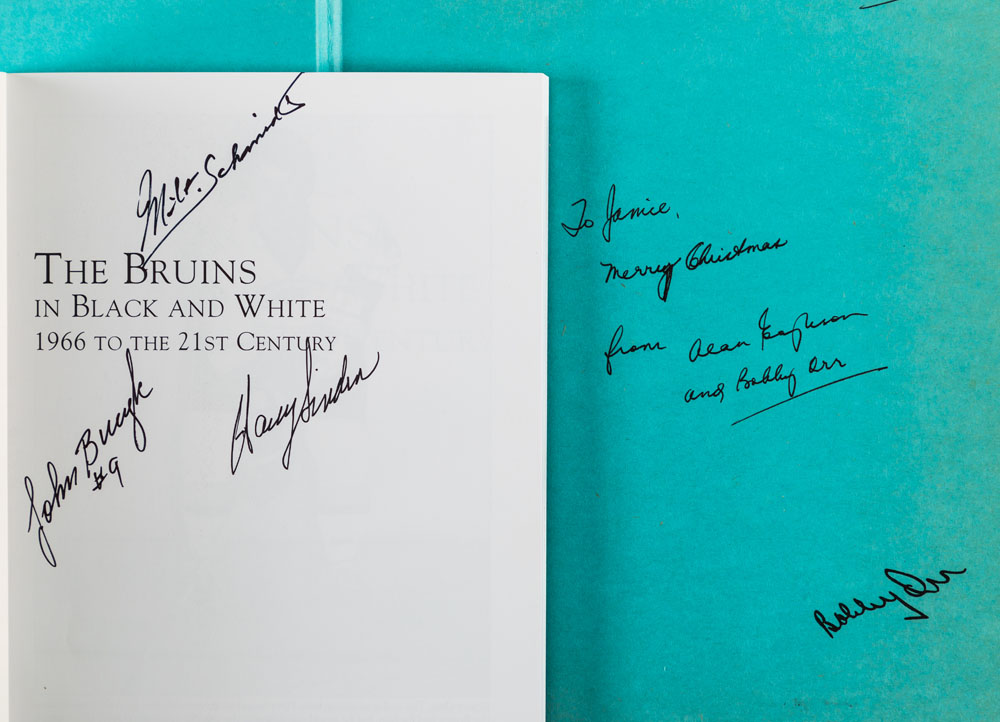 Milt. Schmidt
THE BRUINS
IN BLACK AND WHITE
1966 TO THE 21ST CENTURY
John Bucyk
#9
Harry Sinden
To Janice,
Merry Christmas
from Alan Eagleson
and Bobby Orr
Bobby Orr